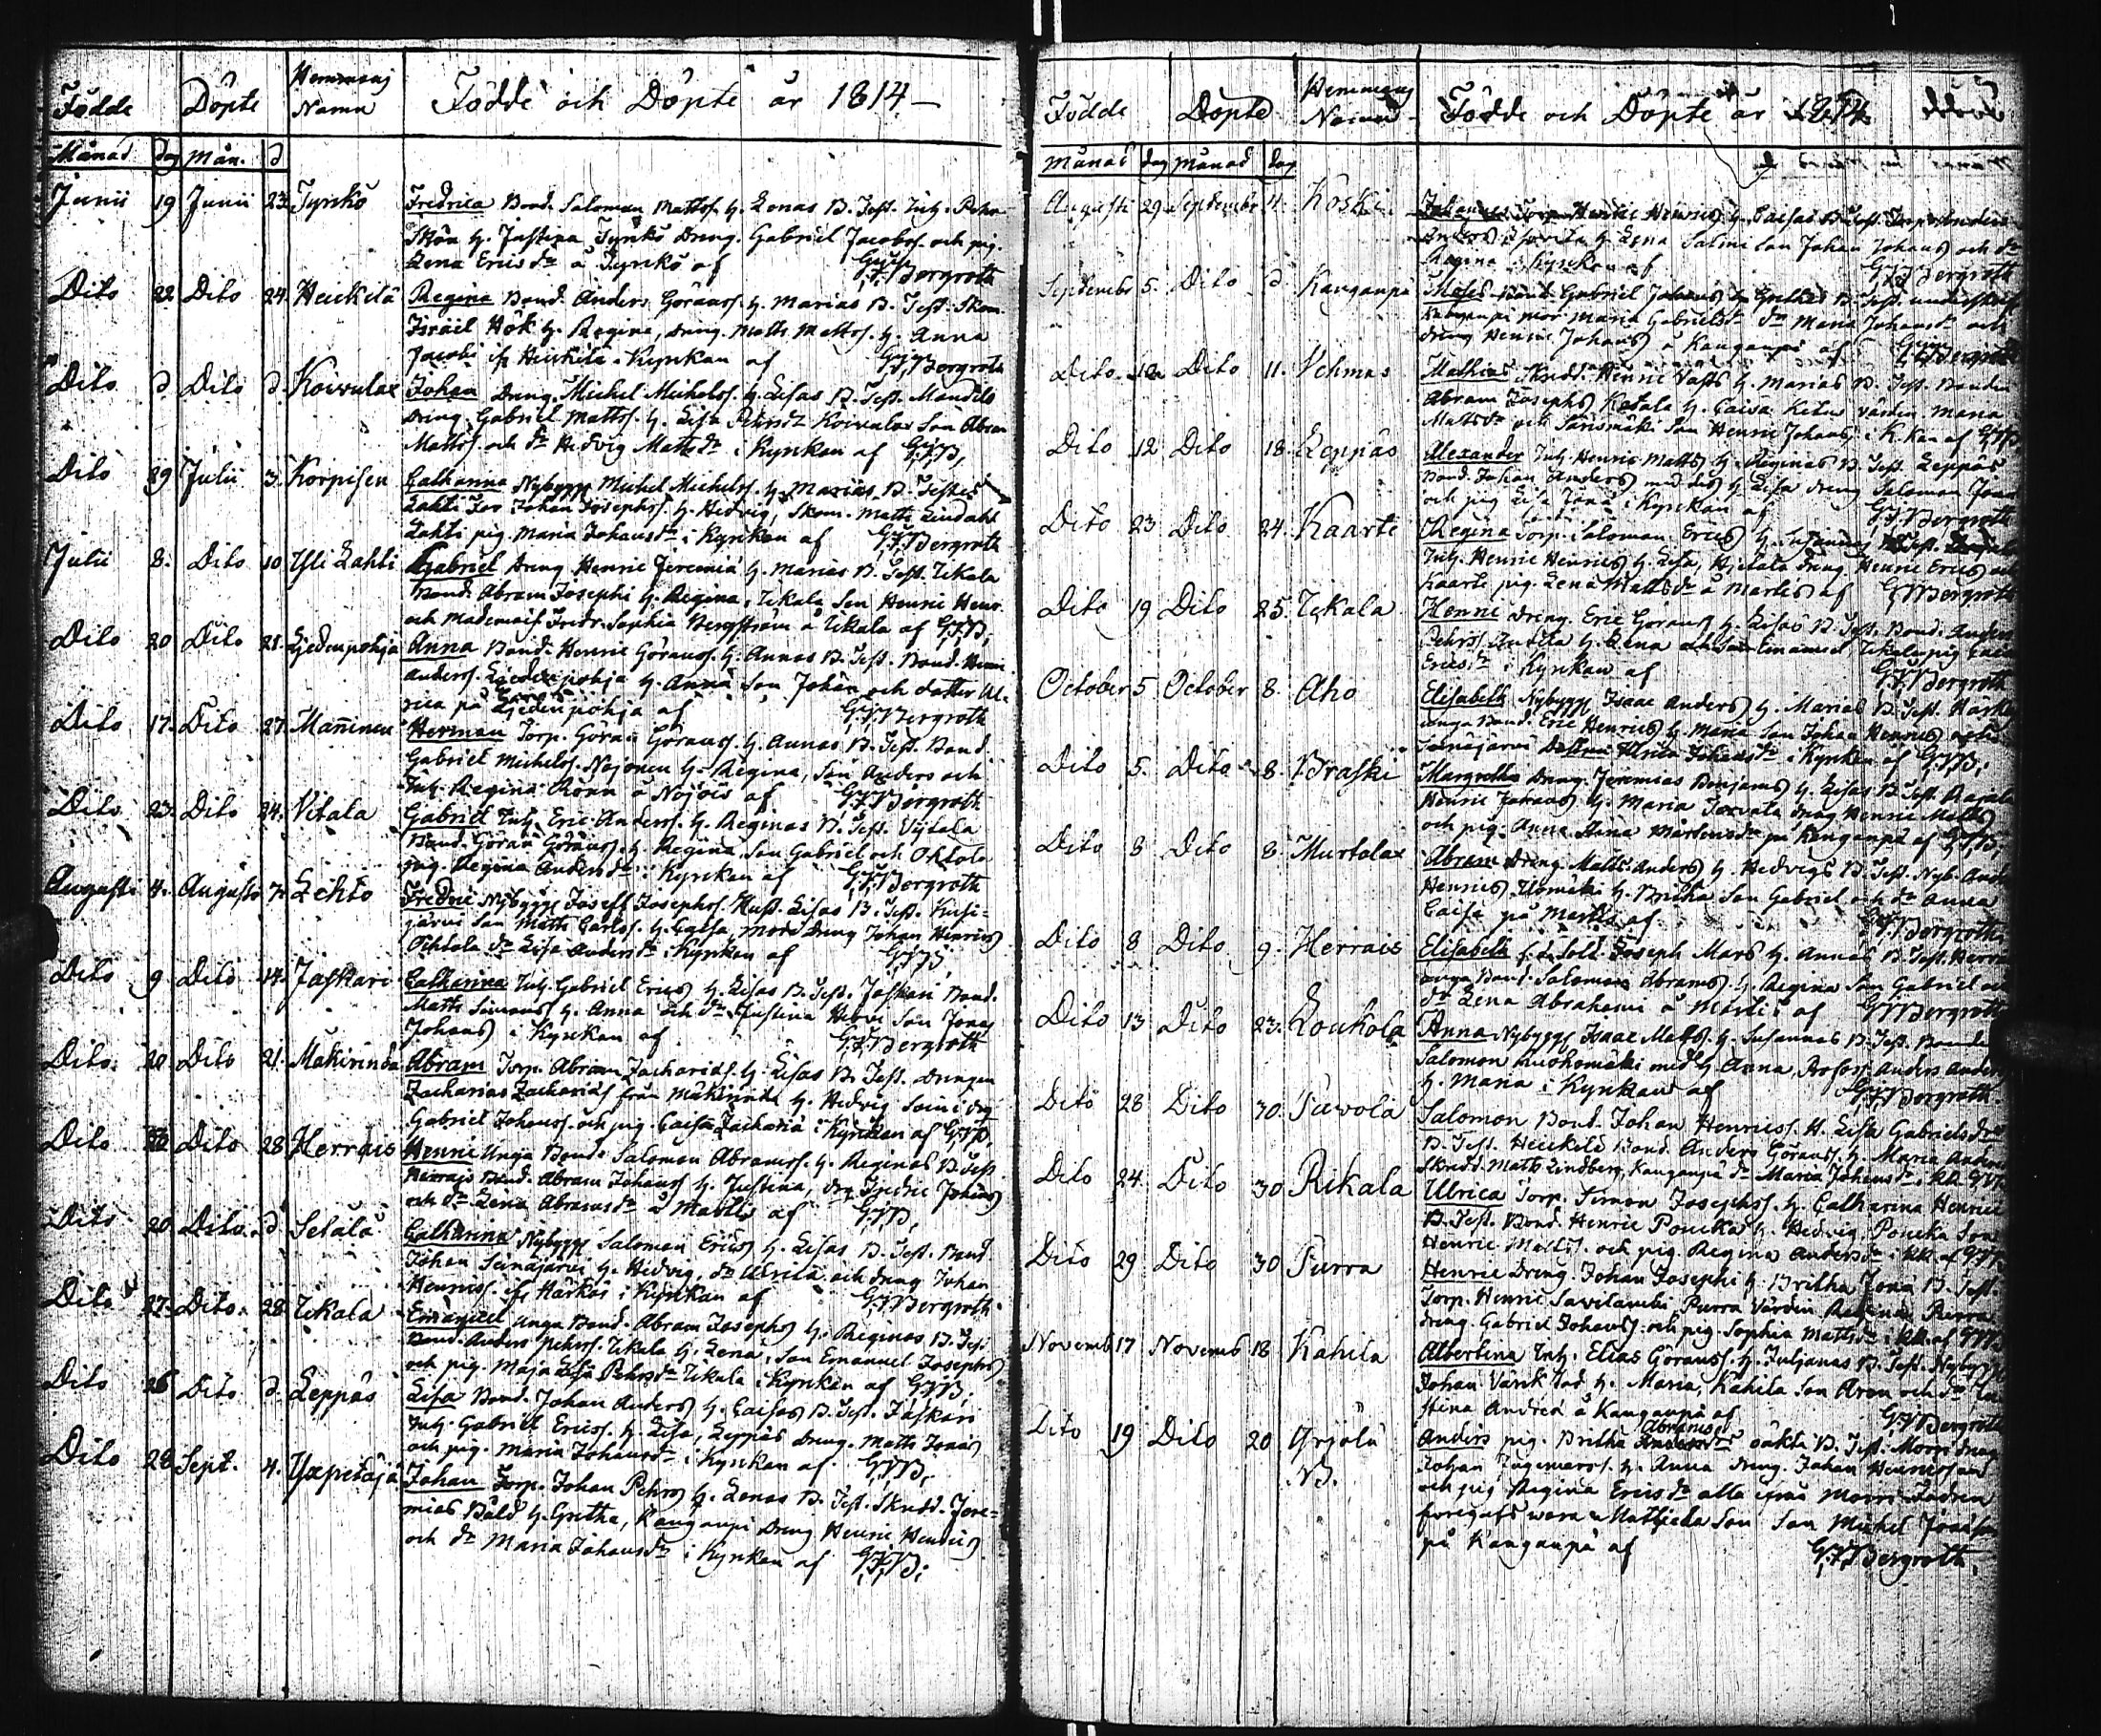 Födde Döpte Hemmans Namn Födde och Döpte år 1814
Månad dag Mån. d
Junii 19 Junii 23 Tynkö Fredrica Bond. Salomon Mattss. h. Lenas B. Test. Inh. Pehr
h. Justina Tynkö Dreng. Gabriel Jacobss. och pig.
Lena Ericsdr å Tynkö af G.F.Bergroth
Dito 22 Dito 24. Heickilä Regina Bond. Anders Göranss. h. Marias B. Test. Skom.
Israel Hök h. Regina, dreng. Matts Mattss. h. Anna
Jacobi if. Heickilä i Kyrckan af G.F.Bergroth
Dito d Dito d Koivulax Johan Dreng. Michel Michelss. h. Lisas B. Test. Mandilo
dreng. Gabriel Mattss. h. Lisa Koivulax Son Abram
Mattss. och dr Hedvig Mattsdr i Kyrckan af G.F.B.
Dito 29 Julii 3. Korpisen Catharina Nybygg. Michel Michelss. h. Marias B. Testes
Lahti Tor Johan Josephss. h. Hedvig, Skom. Matts Lindahl
Lahti pig. Maria Johansdr i Kyrckan af G.F.Bergroth
Julii 8. Dito 10 Yli Lahti Gabriel Dreng Henric Jeremiæ h. Marias B. Test. Ukala
Bond. Abram Josephi h. Regina, Ukala Son Henric Henr.
och Mademois. Fredr. Sophia Bergstrom å Ukala af G.F.B.
Dito 20 Dito 21. Liedenpohja Anna Bond. Henric Göranss. h. Annas B. Test. Bond. Henr.
Anderss. Liedenpohja h. Anna Son Johan och dotter Ul-
rica på Liedenpohja af G.F.Bergroth
Dito 17. Dito 27. Mañinen Herman Torp. Göran Göranss. h. Annas B. Test. Bond.
Gabriel Michelss. Nojonen h. Regina, Son Anders och
Inh. Regina Rönn å Nojois af G.F.Bergroth
Dito 23. Dito 24. Vitala Gabriel Inh. Eric Anderss. h. Reginas B. Test. Vijtala
Bond. Göran Göranss. h. Regina, Son Gabriel och Ohtola
pig. Regina Andersdr i Kyrckan af G.F.Bergroth
Augusti 4. Augusti 7. Lehto Fredric Nybygg. Joseff Josephss. Hust. Lisas B. Test. Kusi-
järvi Son Matts Carlss. h. Cajsa, Dreng Johan Henrics
Ochtola dr Lisa Andersdr i Kyrckan af G.F.B.
Dito 9 Dito 14. Jaskari Catharina Inh. Gabriel Erics h. Lisas B. Test. Jaskari Bond.
Matts Simonss h. Anna och dr Justina Son Jonas
Johans i Kyrckan af G.F.Bergroth
Dito 20 Dito 21. Mäkirinda Abram Torp. Abram Zacharias h. Lisas B. Test. drengen
Zacharias Zacharias från Mäkirinda h. Hedvig Soini drg
Gabriel Johanss. och pig. Caisa Zachariæ i Kyrckan af G.F.B.
Dito Dito 28 Herrais Henric Unga Bond. Salomon Abramss. h. Reginas B Test
Herrajs Bond. Abram Johanss h. Justina, drg Fredric Johans
och dr Lena Abramsdr å Martis af G.F.B.
Dito 20 Dito d Setälä Catharina Nybygg Salomon Erics h. Lisas B. Test. Bond
Johan Seinäjärvi h. Hedvig, dr Ulrica och dreng Johan
Henricss. if. Härkös i Kyrckan af G.F.Bergroth
Dito 27. Dito. 28. Ukala Emanuel unga Bond. Abram Josephs h. Reginas B. Test
Bond. Anders Pehrss. Ukala h. Lena, Son Emanuel Josephs
och pig. Maja Lisa Pehrsdr Ukala i Kyrckan af G.F.B.
Dito 26 Dito d. Leppäs Lisa Bond. Johan Anders h. Caisas B. Test. Jaskari
Inh. Gabriel Ericss. h. Lisa, Leppäs dreng. Matts Jonas
och pig. Maria Johansdr i Kyrckan af G.F.B.
Dito 28 Sept. 4. Yxpetäjä Johan Torp. Johan Pehrs h. Lenas B. Test. Skredd. Jere-
mias Båld h. Gretha, Kangaupä Dreng Henric Henrics
och dr Maria Johansdr i Kyrckan af G.F.B.
Födde Döpte Hemmans Namn Födde och Döpte år 1814
Månad dag Månad dag
Augusti 29 Septembr 4. Koski Johannes Torp. Henric Henrics h. Caisas B Test. Torp. Anders
Anders h. Lena Salmi Son Johan Johans och dr
Regina i Kyrckan af G.F.Bergroth
Septembr 5. Dito d Kangaupä Moses Bond. Gabriel Johans h. Grethas B. Test.
Kangaupä mor Maria Gabrielsdr dr Maria Johansdr och
dreng Henric Johans å Kangaupä af G.F.Bergroth
Dito Dito 11. Vehmas Mathias Skredd. Henric h. Marias B. Test. Bonden
Abram Josephs Katala h. Caisa Ketus värden. Maria
Mattsdr och Särismäki Son Henric Johans i K.kan af G.F.B.
Dito 12 Dito 18. Leppäs Alexander Inh. Henric Matts h. Reginas B. Test. Leppäs
Bond. Johan Anders med dess h. Lisa dreng Salomon
och pig Lisa Jonæ i Kyrckan af G.F.Bergroth
Dito 23 Dito 24. Kaarte Regina Torp. Salomon Erics h. Susannas B. Test.
Inh. Henric Henrics h. Lisa, Hietala dreng. Henric Erics och
Kaarte pig. Lena Mattsdr å Martis af G.F.Bergroth
Dito 19 Dito 25. Ukala Henric dreng. Eric Görans h. Lisas B. Test. Bond. Anders
Pehrss h. Lena Emanuel, Ukala pig
Ericsdr i Kyrckan af G.F.Bergroth
October 5 October 8. Aho Elisabeth Nybygg Isaac Anders h. Marias B. Test. Härkö
unga Bond. Eric Henrics h. Maria Son Johan Henrics
Seinäjärvi Ulrica Johansdr i Kyrckan af G.F.B.
Dito 5. Dito 8. Braski Margretha dreng. Jeremias Benjams h. Lisas B. Test.
Henric Johans h. Maria dreng Henric Matts
och pig. Anna Stina Mårtensdr på Kangaupä af G.F.B.
Dito 8 Dito 8. Murtolax Abram Dreng. Matts Anders h. Hedvigs B. Test. Nyb.
Henrics h. Britha Son Gabriel och dr Anna
Caisa på Martis af G.F.Bergroth
Dito 8 Dito 9. Herrais Elisabeth f.d. Sold. Joseph Mars h. Annas B. Test. Herrais
unga Bond. Salomon Abrams h. Regina Son Gabriel och
dr Lena Abrahami å Martis af G.F.Bergroth
Dito 13 Dito 23. Loukola Anna Nybygg Isaac Matts. h. Susannas B. Test. Bonden
Salomon Luohomäki med h. Anna, Anders Anders
h. Maria i Kyrckan af G.F.Bergroth
Dito 28 Dito 30. Puvola Salomon Bond. Johan Henricss. H. Lisa Gabrielsdr
B. Test. Heickilä Bond. Anders Göranss. h. Maria
Skredd. Matts Lindberg, Kangaupä dr Maria Johansdr i kk. G.F.B.
Dito 24. Dito 30 Rikala Ulrica Torp. Simon Josephss. h. Catharina Henrici
B. Test. Bond. Henric Poucka h. Hedvig, Poucka Son
Henric Mattss. och pig. Regina Andersdr i kk. af G.F.B.
Dito 29 Dito 30 Purra Henric Dreng. Johan Josephi h. Britha Jonæ B. Test.
Torp. Henric Savilambi, Purra Värden Regina Purra
dreng. Gabriel Johanss. och pig. Sophia Mattsdr i kk. af G.F.B.
Novemb 17 Novemb 18 Kahila Albertina Inh. Elias Göranss. h. Juljanas B. Test. Nybygg
Johan h. Maria, Kahila Son Aron och dr
Stina Andreæ å Kangaupä af G.F.Bergroth
Dito 19 Dito 20 Yrjölä Anders pig. Britha Abramsdr oäkta B. Test. Morri dreng
N.B. Johan Ingemarss. h. Anna dreng. Johan Henricsson
och pig Regina Ericsdr alla ifrån Morri. Fadren
föregafs wara Son Michel
på Kangaupä af G.F.Bergroth